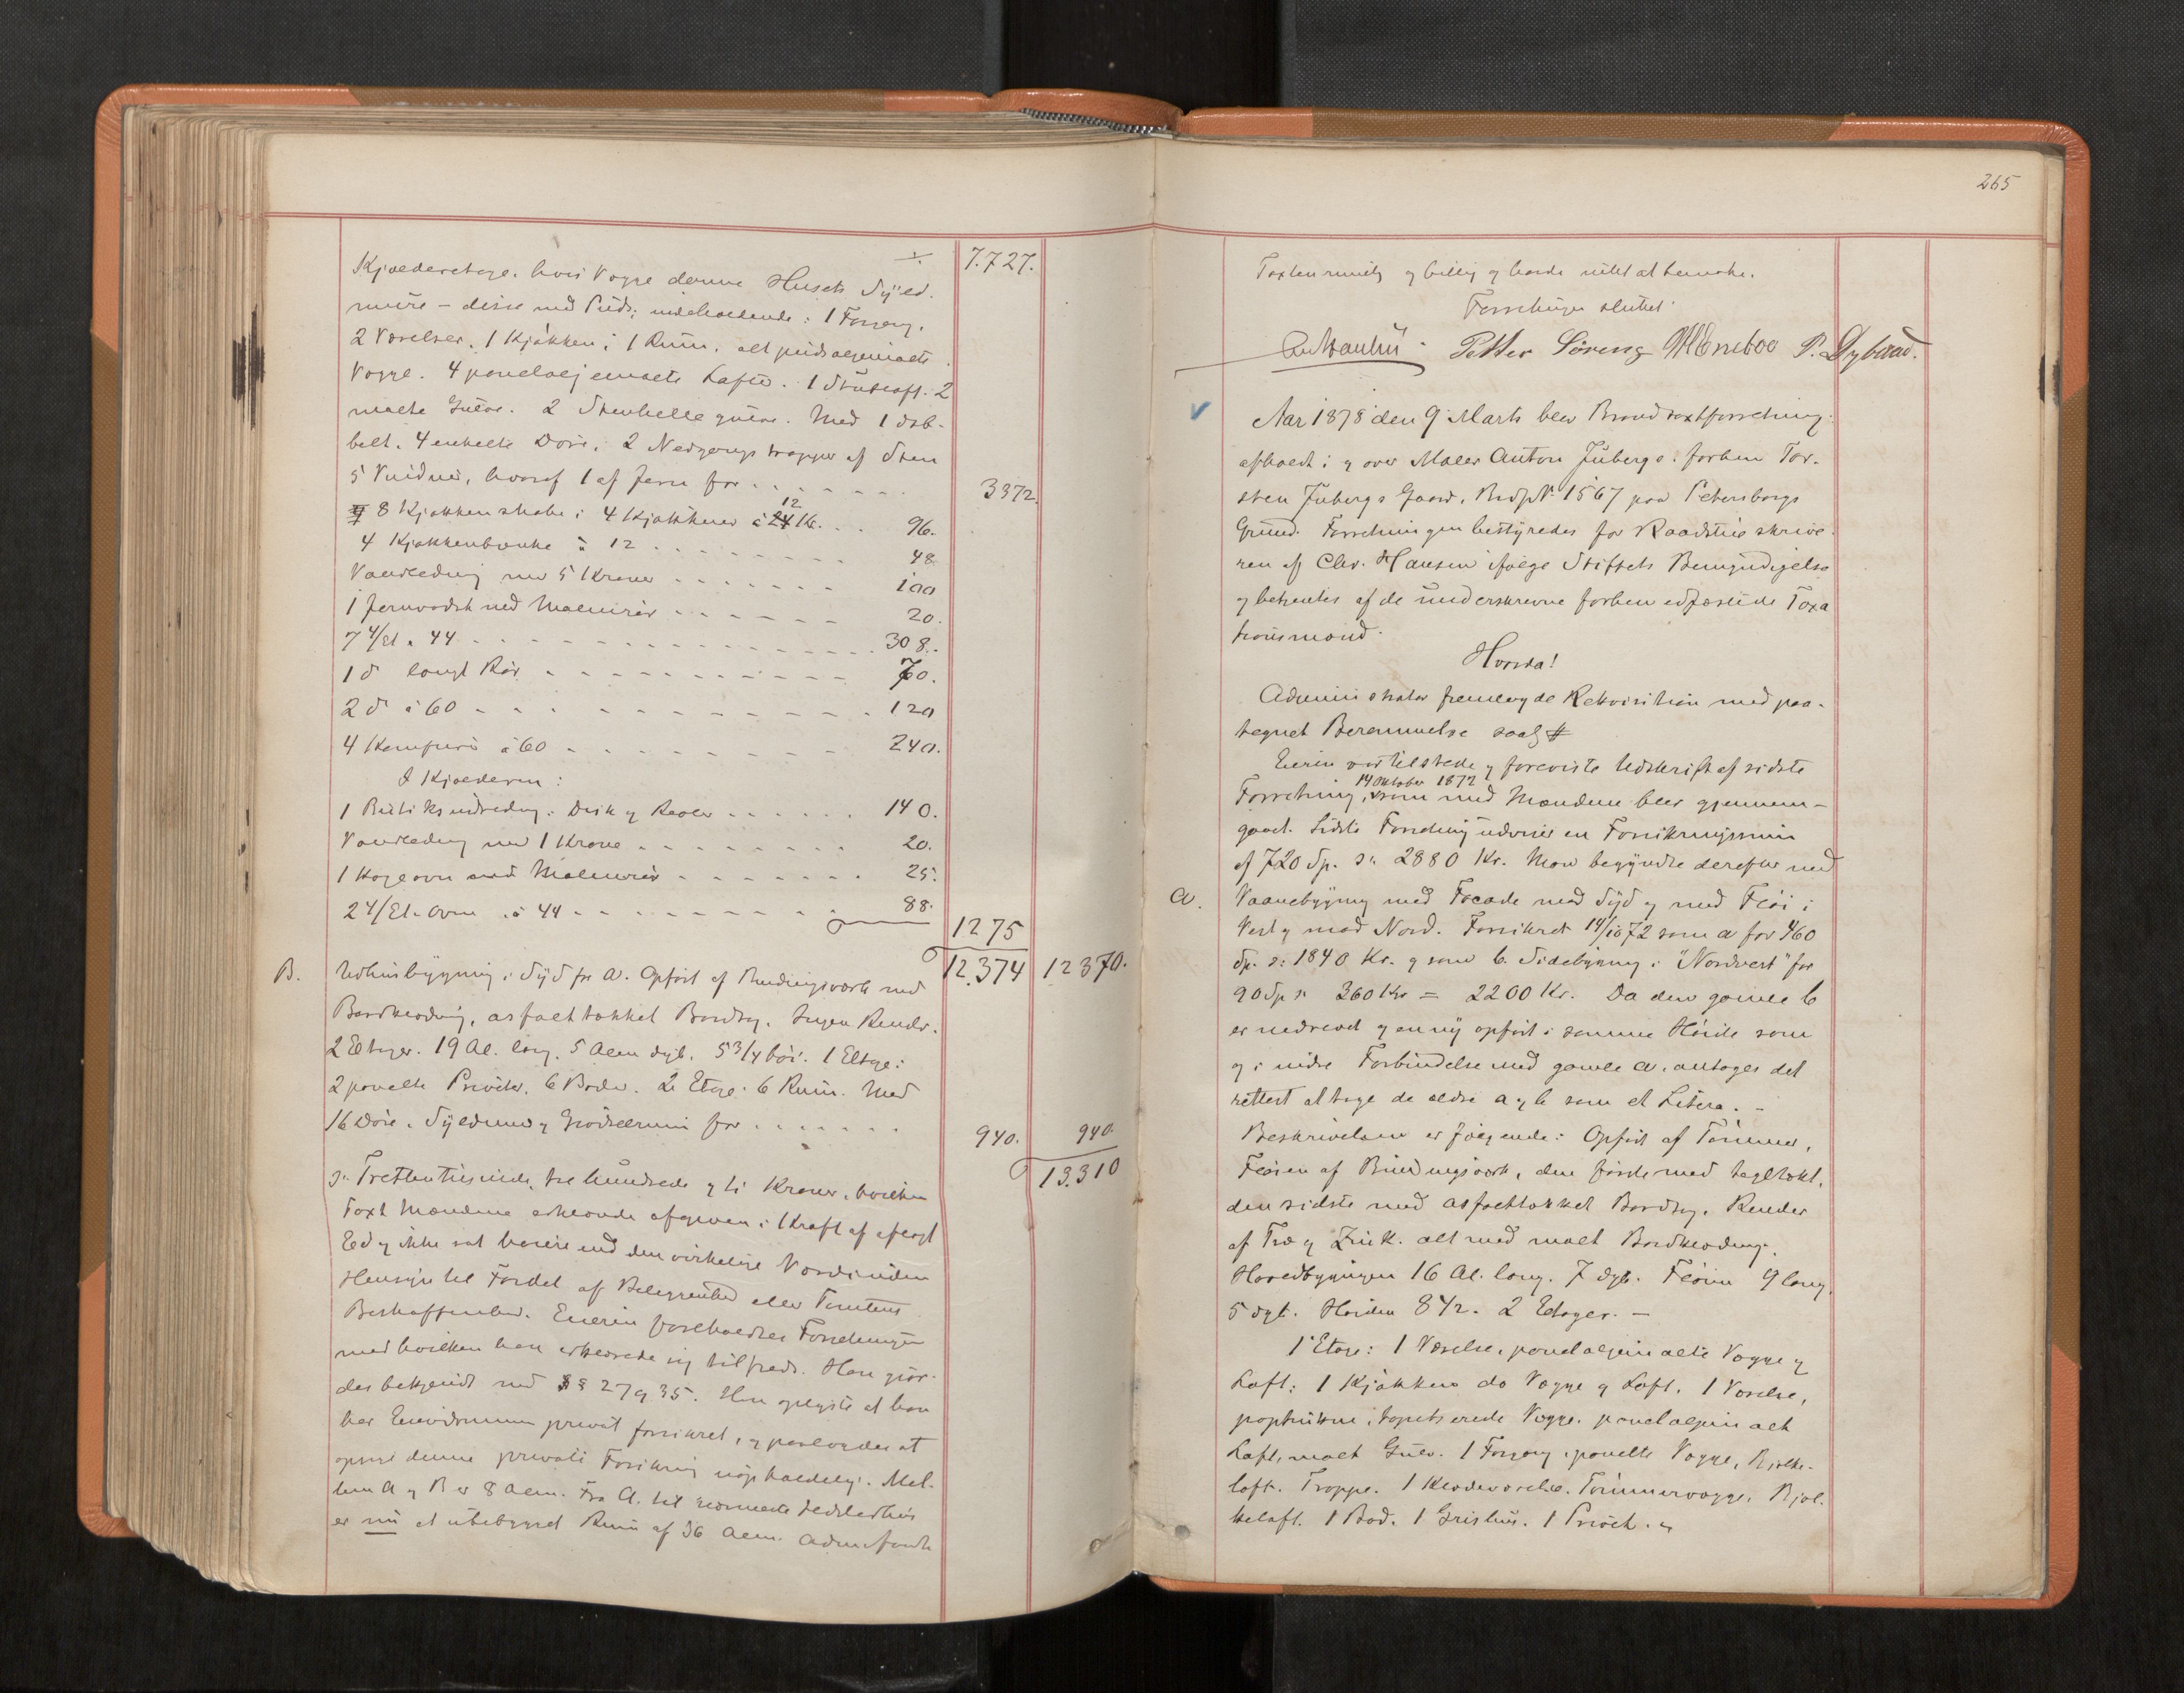 ÷ 7.727.
Kjælderetage, hvis Vægge danne Husets Syld-
mure – disse med Puds; indeholdende: 1 Forgang,
2 Værelser, 1 Kjøkken, 1 Rum, alt pudsoljemalte
Vægge. 4 paneloljemalte Lofte. 1 Stukloft. 2
malte Gulve. 2 Stenhellegulve. Med 1 dob-
belt, 4 enkelte Døre, 2 Nedgangstrapper af Sten
5 Vinduer, hvoraf 1 af Jern for . . . . . . . 3372.
8 Kjøkkenskabe i 4 Kjøkkener à 12 Kr. . . 96.
4 Kjøkkenbænke à 12 . . . . . . . . 48
Vandledning med 5 Kraner . . . . . . . 100
1 Jernvadsk med . . . . . . 20.
7 4/Et. à 44 . . . . . . . . . . . 308.
1 d langt Rør . . . . . . . . . . 70.
2 d à 60 . . . . . . . . . . . . 120
4 Komfurer à 60 . . . . . . . . . 240.
I Kjælderen:
1 Butiksindredning: Disk og Reoler . . . . . . 140.
Vandledning med 1 Krane . . . . . . . . 20.
1 Kogeovn med . . . . . . . 25.
2 4/Et. Ovne à 44 . . . . . . . . . 88.
1275
12.374 12370.
B. Udhusbygning i Syd for A. Opført af Bindingsværk med
Bordklædning, asfalttækket Bordtag. Ingen Render.
2 Etager. 19 Al. lang, 5 Alen dyb, 5 3/4 høi. 1 Etage:
2 panelte Priveter, 6 Boder. 2 Etage: 6 Rum. Med
16 Døre, Syldmur og for . . . . . . 940. 940.
13.310
s: Trettentusinde, tre hundrede og ti Kroner, hvilken
Taxt Mændene erklærede afgiven i Kraft af aflagt
Ed og ikke sat høiere end den virkelige Værdi uden
Hensyn til Fordel af Beliggenhed eller Tomtens
Beskaffenhed. Eierin foreholdtes Forretningen
med hvilken hun erklærede sig tilfreds. Hun gjør-
des bekjendt med §§ 27 og 35. Hun oplyste at hun
har Eiendommen privat forsikret, og paalagdes at
opsige denne private Forsikring uopholdelig. Mel-
lem A og B er 8 Alen. Fra A. til nærmeste Ildstedhus
er nu et ubebygget Rum af 36 Alen.
265
Taxten rimelig og billig og havde intet at bemærke.
Forretningen sluttet.
Petter Søreng P. Dybaad.
Aar 1878 den 9 Marts blev Brandtaxtforretning
afholdt i og over Maler Anton Jubergs, forhen Tor-
sten Jubergs Gaard, Brdp No 1567 paa Petersborgs
Grund. Forretningen bestyredes for Raadstueskrive-
ren af Chr. Hansen ifølge Stiftets Bemyndigelse
og betjentes af de underskrevne forhen edfæstede Taxa
tionsmænd.
Hvorda!
Administrator fremlagde Rekvisition med paa-
tegnet Berammelse saal #
Eierin var tilstede og foreviste Udskrift af sidste
14 Oktober 1872
Forretning, som med Mændene blev gjennem-
gaaet. Sidste Forretning udviser en Forsikringssum
af 720 Sp. s: 2880 Kr. Man begyndte derefter med
a. Vaanebygning med Facade mod Syd og med Fløi i
Vest og mod Nord. Forsikret 14/10 72 som a for 460
Sp. s: 1840 Kr. og som b. Sidebygning i "Nordvest" for
90 Sp s: 360 Kr = 2200 Kr. Da den gamle b
er nedrevet og en ny opført i samme Høide som
og i indre Forbindelse med gamle a, antages det
rettest at tage de ældre a og b som et Litera. –
Beskrivelsen er følgende: Opført af Tømmer,
Fløien af Bindingsværk, den første med tegltækt,
den sidste med asfalttækket Bordtag. Render
af Træ og Zink. alt med malt Bordklædning.
Hovedbygningen 16 Al. lang, 7 dyb. Fløien 9 lang,
5 dyb. Høiden 8 1/2. 2 Etager. –
1 Etage: 1 Værelse, paneloljemalte Vægge og
Loft: 1 Kjøkken do Vægge og Loft. 1 Værelse,
paptrukne, tapetserede Vægge, paneloljemalt
Loft, malt Gulv. 1 Forgang, panelte Vægge, Bjelke-
loft. Trappe. 1 Klædeværelse, Tømmervægge, Bjel-
keloft. 1 Bod. 1 Grishus. 1 Privet.